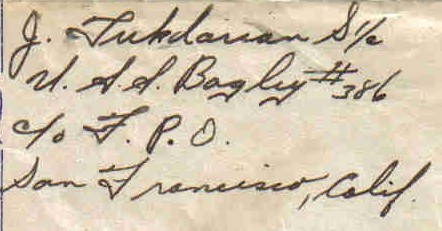 J. Tukdarian S 1/c
U. S. S. Bagley #386
c/o F. P. O.
San Francisco, Calif.